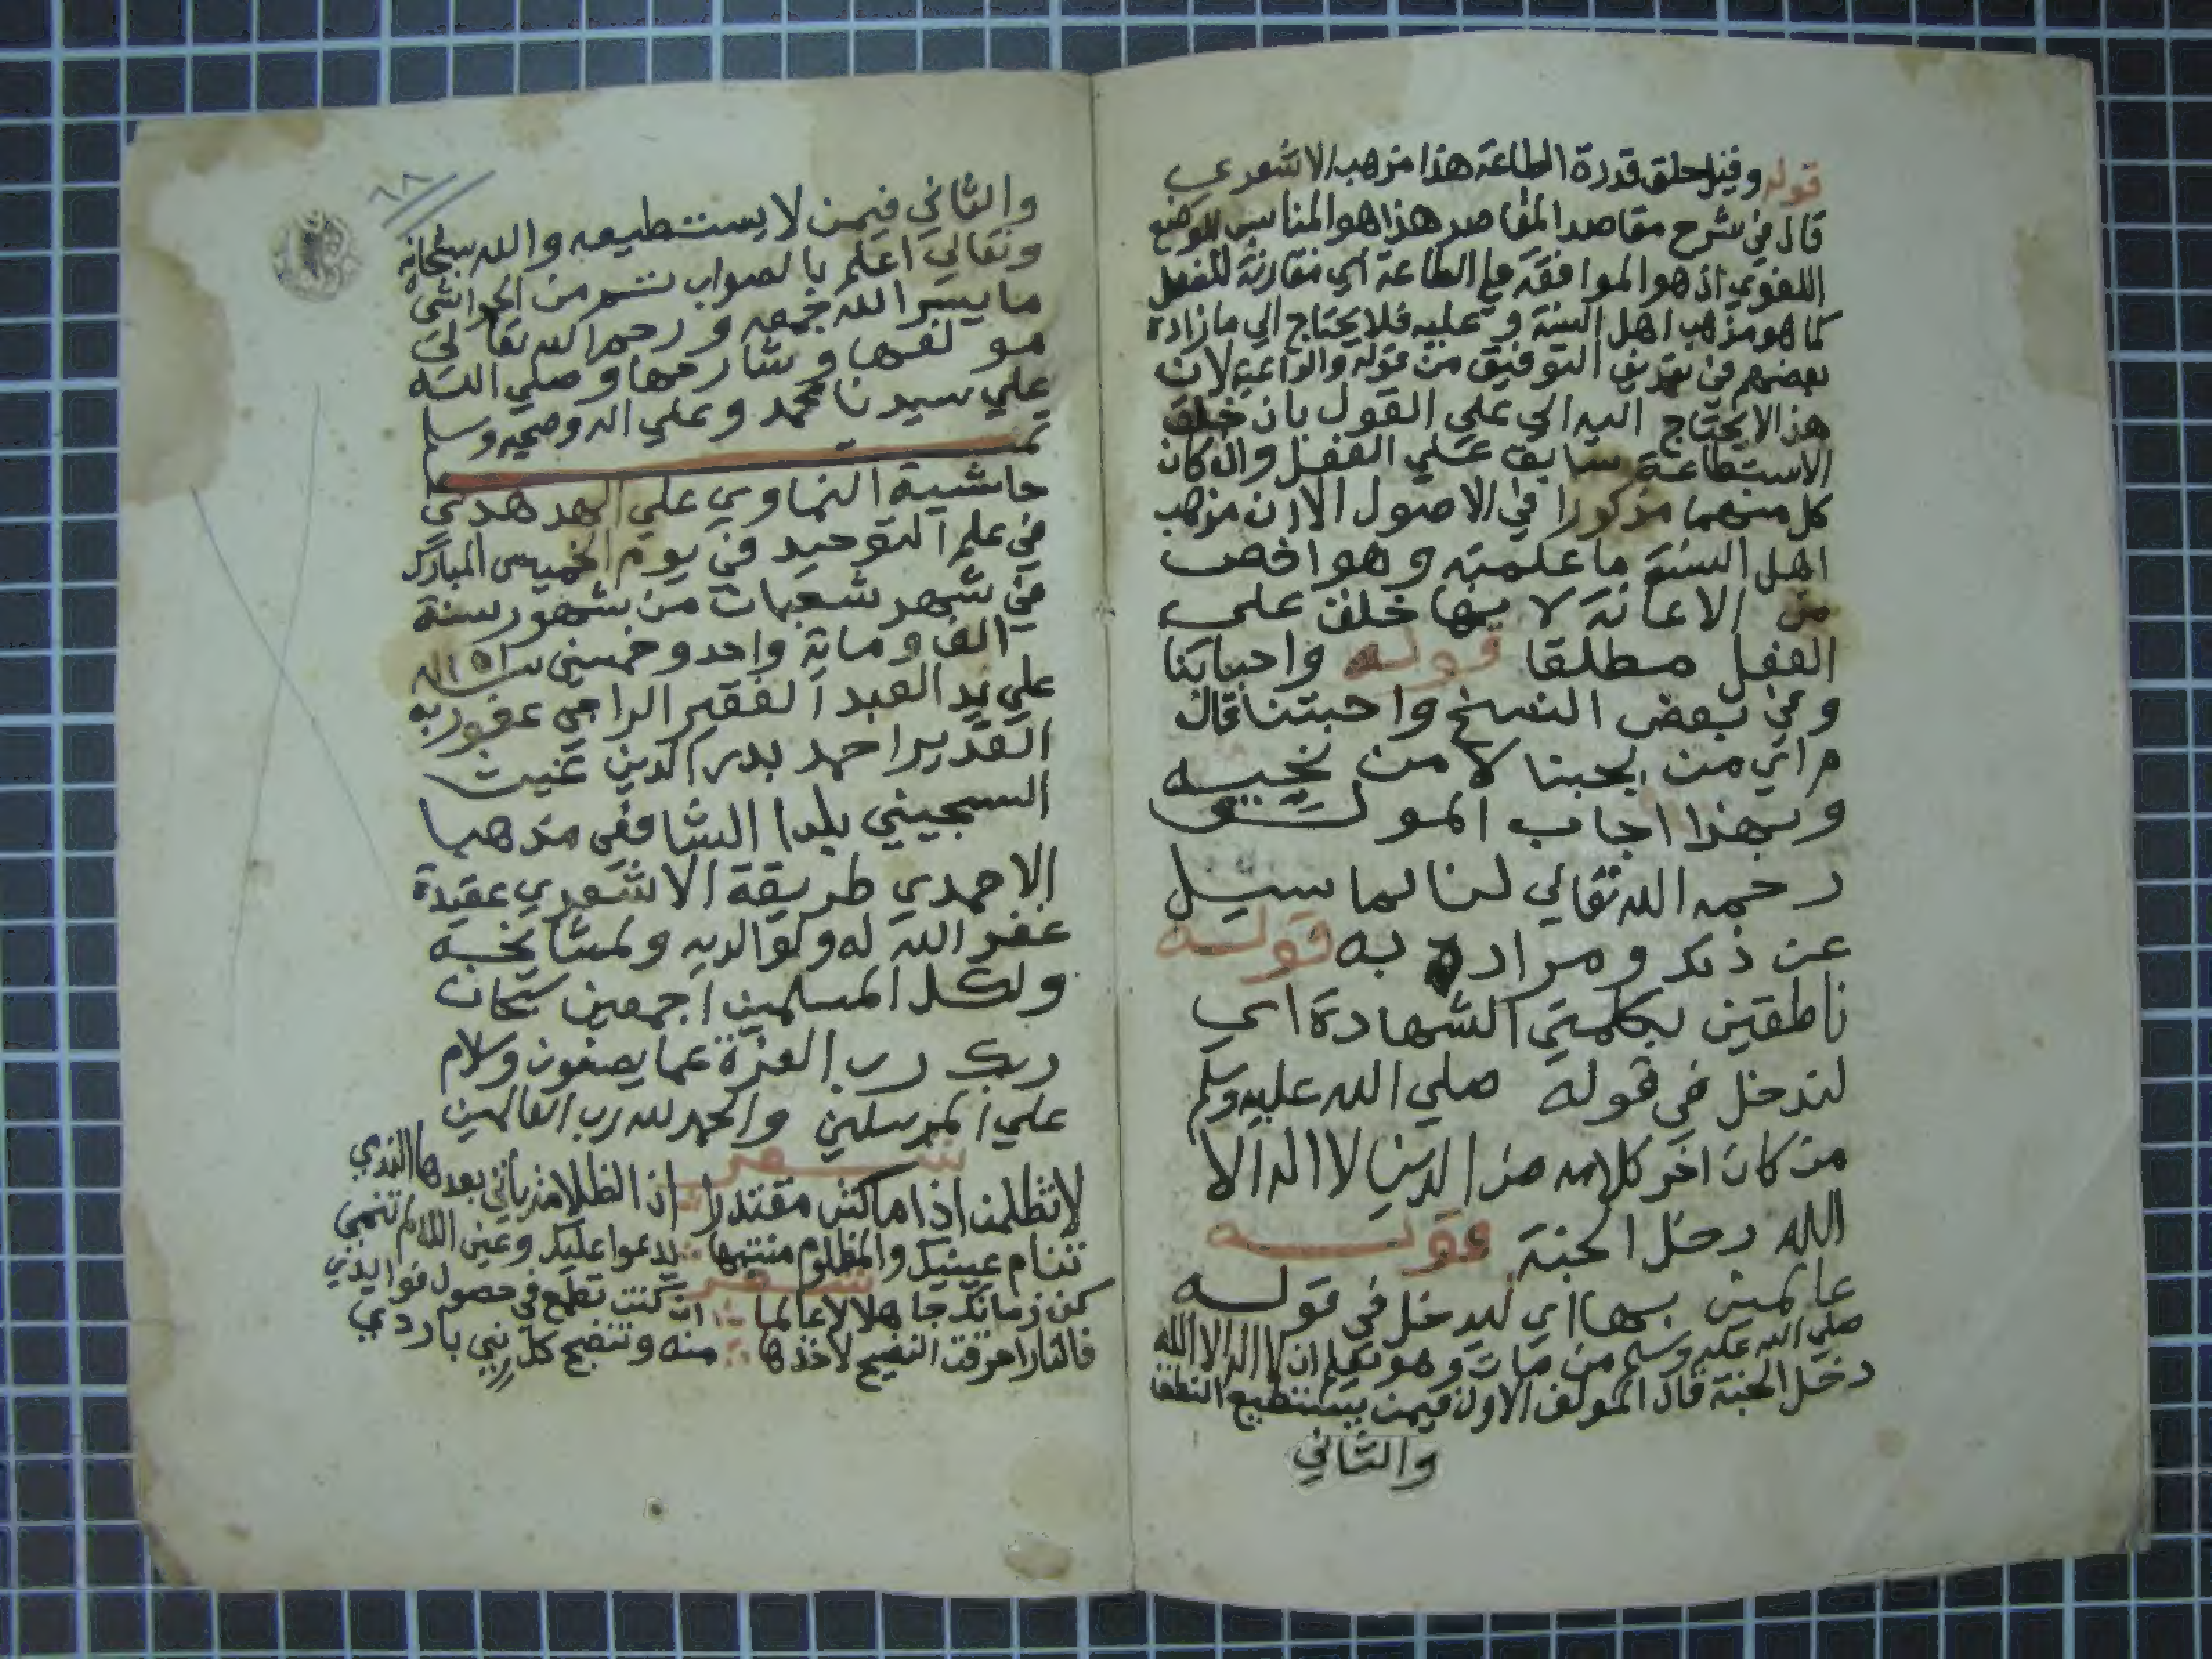 قوله وقيل خلق قدرة الطاعة هذا مذهب الاشعري
قال في شرح مقاصد المقاصد هذا هو المناسب للوضع
اللغوي اذ هو الموافقة علي الطاعة اي مقارنة للفعل
كما هو مذهب اهل السنة وعليه فلا يحتاج الي ما زاده
بعضهم في تعريف التوفيق من قوله والداعية لان
هذا لا يحتاج اليه الي علي القول بان خلق
الاستطاعة سابق علي الفعل وان كان
كل منهما مذكورا في الاصول الا ان مذهب
اهل السنة ما علمته وهو اخص
من الاعانة لا نها خلق علي
الفعل مطلقا قوله واحبابنا
وفي بعض النسخ واحبتنا قال
م اي من يحبنا لا من نحبه
وبهذا اجاب المولف
رحمه الله تعالي لنا لما سيل
عن ذلك ومراده به قوله
ناطقين بكلمتي الشهادة اي
لندخل في قوله صلي الله عليه وسلم
من كان اخر كلامه من الدنيا لا اله الا
الله دخل الجنة قوله
عالمين بها اي ليدخل في قوله
صلي الله عليه وسلم من مات وهو يعلم ان لا اله الا الله
دخل الجنة قال المولف الاول فيمن يستطيع النطق
والثاني
٦٨
والثاني فيمن لا يستطيعه والله سبحانه
وتعالي اعلم بالصواب تتم من الحواشي
ما يسر الله جمعه ورحم الله تعالي
مولفها وشارحها وصلي الله
علي سيدنا محمد وعلي اله وصحبه وسلم
تمت
حاشية النماوي علي الهدهدي
في علم التوحيد في يوم الخميس المبارك
في شهر شعبان من شهور سنة
الف وماية واحد وخمسين سنة ١١٥١
علي يد العبد الفقير الراجي عفو ربه
القدير احمد بدر الدين غنيت
السجيني بلدا الشافعي مذهبا
الاحمدي طريقة الاشعري عقيدة
غفر الله له ولوالديه ولمشايخه
ولكل المسلمين اجمعين سبحان
ربك رب العزة عما يصفون وسلام
علي المرسلين والحمد لله رب العالمين
شعر
لا تظلمن اذا ما كنت مقتدرا ان الظلامة ياتي بعدها الندي
تنام عينيك والمظلوم منتبها يدعوا عليك وعين الله لم تنمي
شعر
كن زمانك جاهلا لا عالما ان كنت تطمع في حصول فوايدي
فالنار احرقت النضيج لاخذها منه وتنضج كل نيي باردي